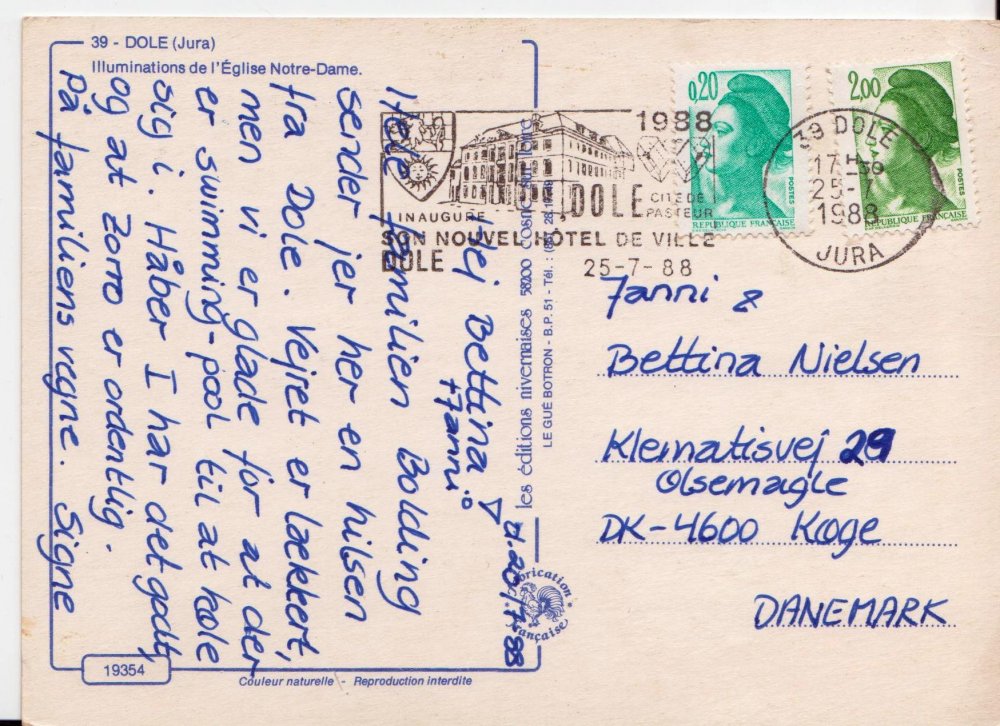 39 - DOLE (Jura)
Illuminations de l'Église Notre-Dame.
d. 20/7-88
Hej Bettina
+Janni.
Hele familien Bolding
sender jer her en hilsen
fra Dole. Vejret er lækkert,
men vi er glade for at der
er swimming-pool til at køle
sig i. Håber I har det godt,
og at Zorro er ordentlig.
på familiens vegne. Signe
19354
Couleur naturelle - Reproduction interdite
les éditions nivernaises 58200 cosne sur loire
LE GUÉ BOTRON - B.P. 51 - Tél. : 28.
fabrication française
1988
INAUGURE
DOLE
CITÉ DE
PASTEUR
SON NOUVEL HÔTEL DE VILLE
DOLE 25-7-88
0,20
POSTES
REPUBLIQUE FRANÇAISE
2,00
POSTES
REPUBLIQUE FRANÇAISE
39 DOLE
17H30
25-7
1988
JURA
Janni &
Bettina Nielsen
Klematisvej 29
Ølsemagle
DK-4600 Køge
DANEMARK